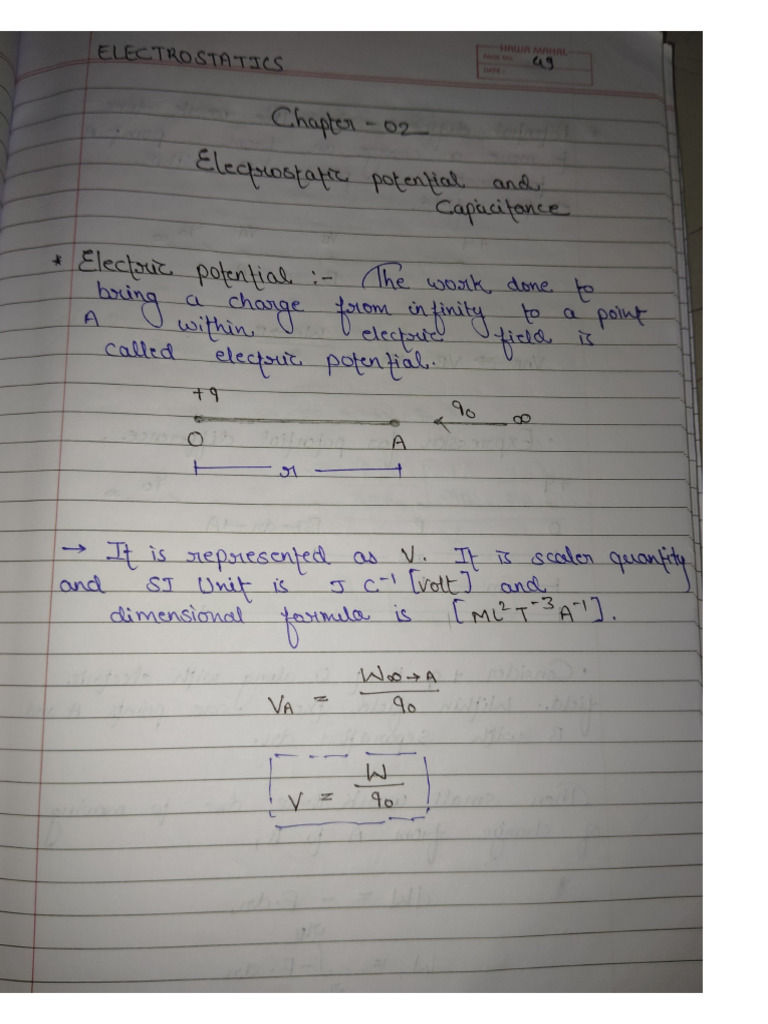 ELECTROSTATICS
HAWA MAHAL
PAGE NO. 49
DATE:
Chapter - 02
Electrostatic potential and
Capacitance
* Electric potential :- The work done to
bring a charge from infinity to a point
A within electric field is
called electric potential.
+q
q₀ ∞
O A
r
→ It is represented as V. It is scaler quantity
and SI Unit is J C⁻¹ [volt] and
dimensional formula is [ML²T⁻³A⁻¹].
V_A = W∞→A / q₀
V = W / q₀